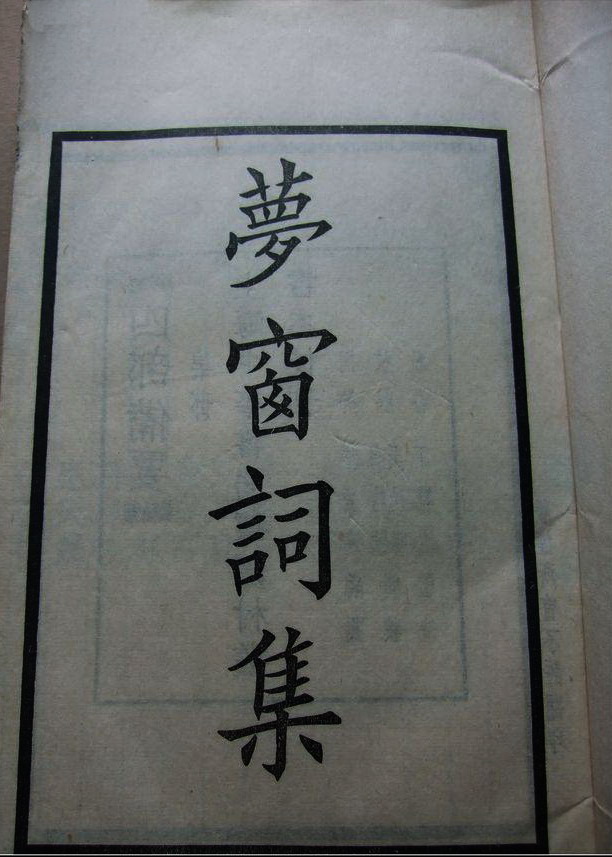 夢窗詞集